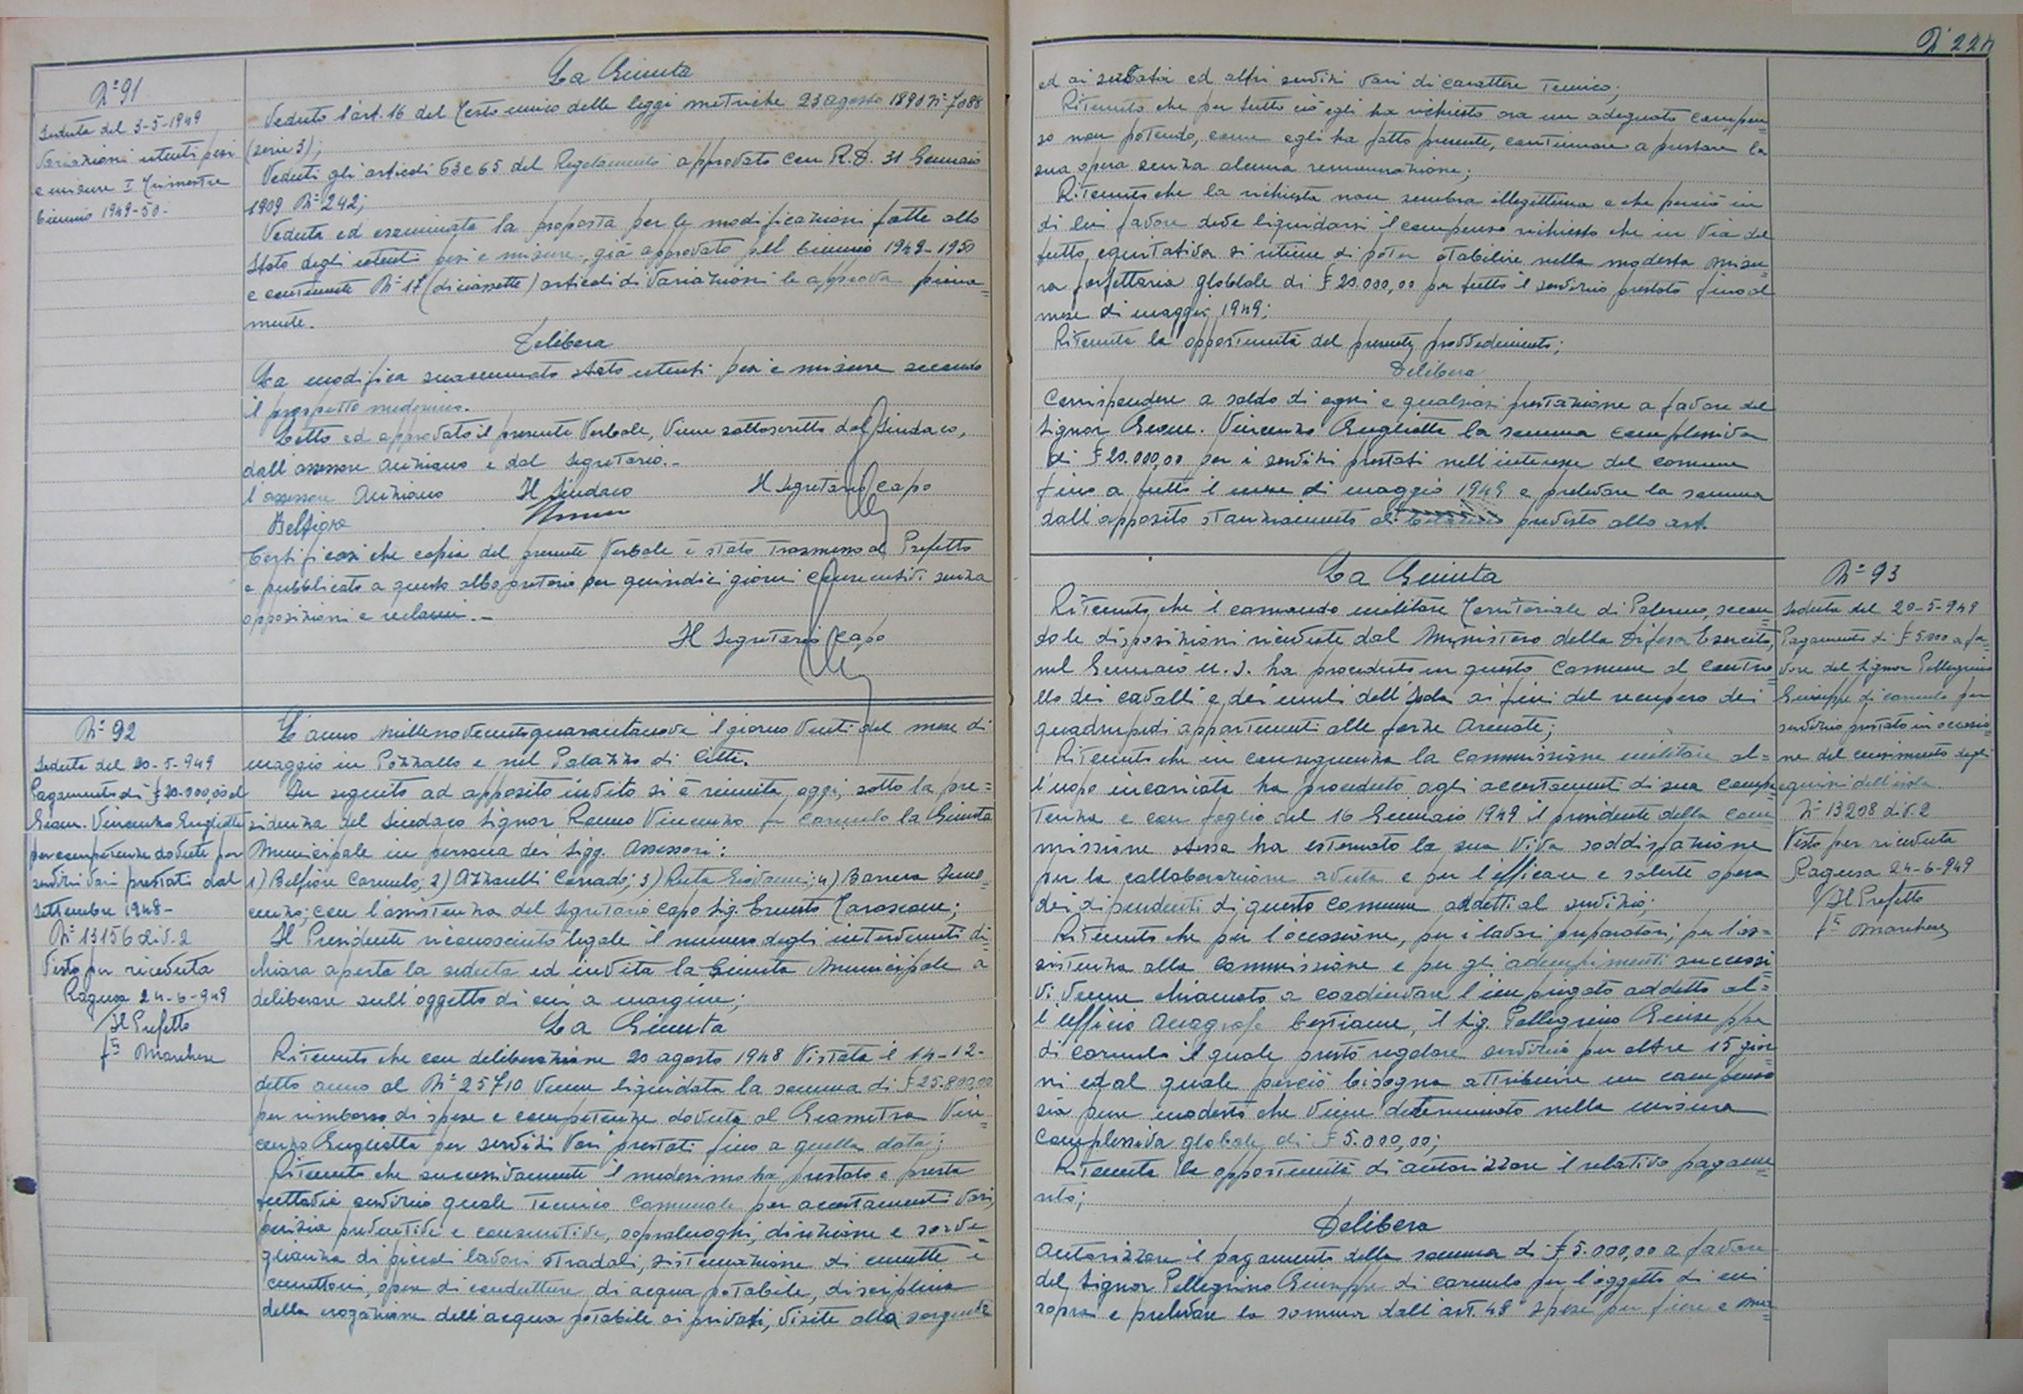 N° 91
Seduta del 3-5-1949
Variazioni utenti pesi
e misure I Trimestre
biennio 1949-50.
La Giunta
Veduto l'art. 16 del Testo unico delle leggi metriche 23 agosto 1890 N° 7088
(serie 3);
Veduti gli articoli 63 e 65 del Regolamento approvato con R.D. 31 Gennaio
1909 N° 242;
Veduta ed esaminata la proposta per le modificazioni fatte allo
stato degli utenti pesi e misure, già approvato pel biennio 1949-1950
e contenente N° 17 (diciassette) articoli di variazioni le approva piena=
mente.
Delibera
La modifica suaccennato stato utenti pesi e misure secondo
il prospetto medesimo.
Letto ed approvato il presente Verbale, viene sottoscritto dal Sindaco,
dall'assessore anziano e dal Segretario.-
l'assessore anziano Il Sindaco Il Segretario Capo
Belfiore
Certificasi che copia del presente Verbale è stato trasmesso al Prefetto
e pubblicato a questo albo pretorio per quindici giorni consecutivi senza
opposizioni e reclami.-
Il Segretario Capo
N° 92
Seduta del 20-5-949
Pagamento di £ 20.000,00 al
Geom. Vincenzo Giugliotta
per competenze dovute per
servizi vari prestati dal
settembre 1948-
N° 13156 div. 2
Visto per ricevuta
Ragusa 24-6-949
Il Prefetto
f° Marchese
L'anno millenovecentoquarantanove il giorno venti del mese di
maggio in Pozzallo e nel Palazzo di Città.
In seguito ad apposito invito si è riunita, oggi, sotto la pre=
sidenza del Sindaco Signor Rauno Vincenzo fu Carmelo la Giunta
Municipale in persona dei Sigg. Assessori:
1) Belfiore Carmelo; 2) Azzarelli Corrado; 3) Ruta Giovanni; 4) Barrera Inno=
cenzo; con l'assistenza del Segretario Capo Sig. Ernesto Tarascone;
Il Presidente riconosciuto legale il numero degli intervenuti di=
chiara aperta la seduta ed invita la Giunta Municipale a
deliberare sull'oggetto di cui a margine;
La Giunta
Ritenuto che con deliberazione 20 agosto 1948 Vistata il 14-12-
detto anno al N° 25710 venne liquidata la somma di £ 25.800,00
per rimborso di spese e competenze dovute al Geometra Vin=
cenzo Giugliotta per servizi vari prestati fino a quella data;
Ritenuto che successivamente il medesimo ha prestato e presta
tuttavia servizio quale Tecnico Comunale per accertamenti vari,
perizie preventive e consuntive, sopraluoghi, direzione e sorve
glianza di piccoli lavori stradali, sistemazione di cunette e
cunettoni, opere di condutture di acqua potabile, disciplina
della erogazione dell'acqua potabile ai privati, visite alla sorgente
N° 224
ed ai serbatoi ed altri servizi vari di carattere tecnico;
Ritenuto che per tutto ciò egli ha richiesto ora un adeguato compen=
so non potendo, come egli ha fatto presente, continuare a prestare la
sua opera senza alcuna remunerazione;
Ritenuto che la richiesta non sembra illegittima e che perciò in
di lui favore deve liquidarsi il compenso richiesto che in via del
tutto equitativa si ritiene di poter stabilire nella modesta misu=
ra forfettaria globale di £ 20.000,00 per tutto il servizio prestato fino al
mese di maggio 1949;
Ritenuta la opportunità del presente provvedimento;
Delibera
Corrispondere a saldo di ogni e qualsiasi prestazione a favore del
Signor Geom. Vincenzo Giugliotta la somma complessiva
di £ 20.000,00 per i servizi prestati nell'interesse del comune
fino a tutto il mese di maggio 1949 e prelevare la somma
dall'apposito stanziamento previsto allo art.
N° 93
Seduta del 20-5-949
Pagamento di £ 5.000 a fa=
vore del Signor Pellegrino
Giuseppe di Carmelo per
servizio prestato in occasio
ne del censimento degli
equini dell'isola.
N° 13208 div. 2
Visto per ricevuta
Ragusa 24-6-949
Il Prefetto
f° Marchese
La Giunta
Ritenuto che il comando militare Territoriale di Palermo, secon
do le disposizioni ricevute dal Ministero della Difesa Esercito,
nel Gennaio u.s. ha proceduto in questo Comune al control
llo dei cavalli e dei muli dell'Isola ai fini del recupero dei
quadrupedi appartenenti alle forze Armate;
Ritenuto che in conseguenza la Commissione militare al=
l'uopo incaricata ha proceduto agli accertamenti di sua compe
tenza e con foglio del 16 Gennaio 1949 il presidente della com
missione stessa ha esternato la sua viva soddisfazione
per la collaborazione avuta e per l'efficace e solerte opera
dei dipendenti di questo comune addetti al servizio;
Ritenuto che per l'occasione, per i lavori preparatori, per l'as=
sistenza alla commissione e per gli adempimenti successi
vi venne chiamato a coadiuvare l'impiegato addetto al=
l'ufficio anagrafe bestiame, il Sig. Pellegrino Giuseppe
di Carmelo il quale prestò regolare servizio per oltre 15 gior
ni ed al quale perciò bisogna attribuire un compenso
sia pure modesto che viene determinato nella misura
complessiva globale di £ 5.000,00;
Ritenuta la opportunità di autorizzare il relativo pagame
nto;
Delibera
Autorizzare il pagamento della somma di £ 5.000,00 a favore
del Signor Pellegrino Giuseppe di Carmelo per l'oggetto di cui
sopra e prelevare la somma dall'art. 48 "spese per fiere e mer